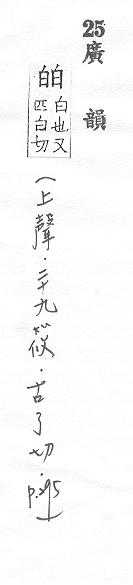 25 廣韻
白也又
匹白切
(上聲．二十九篠．古了切．p.295)